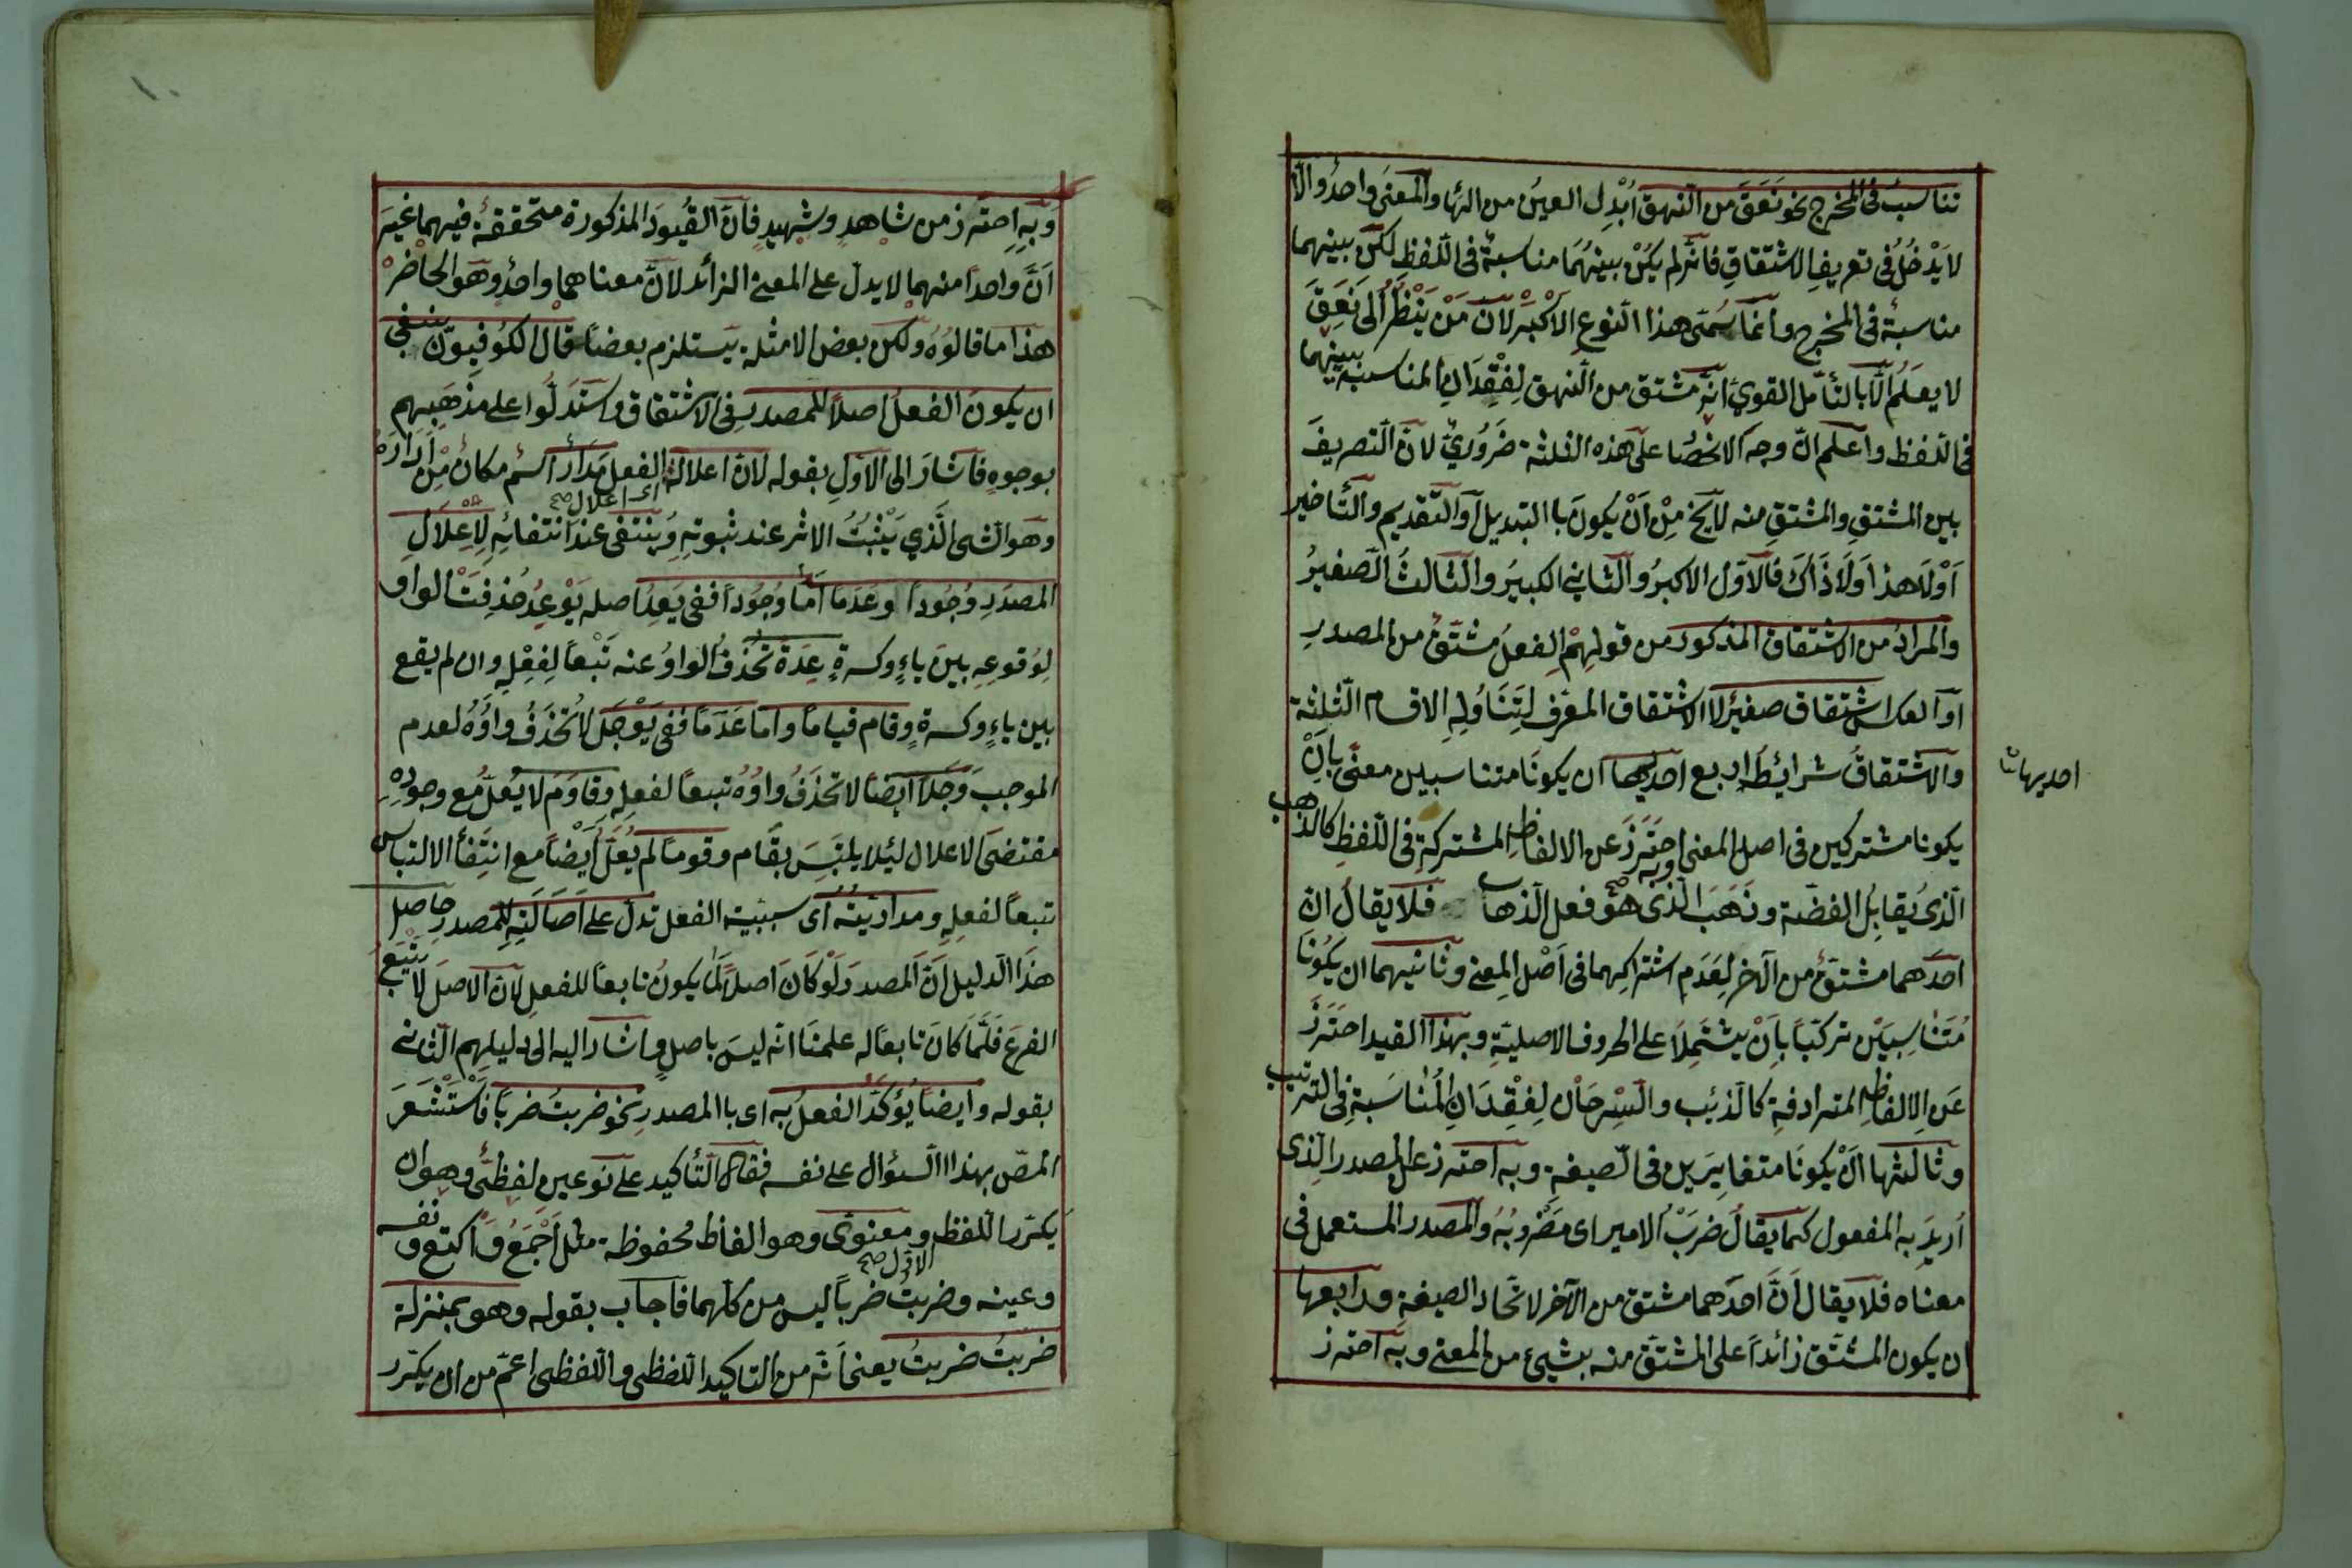 تناسب فى المخرج نحو نَعَقَ من النهق اُبْدِل العينُ من الهاء والمعنى واحدٌ والا
لا يَدْخُلُ فى تعريف الاشتقاق فانّه لم يكنْ بينهُمَا مناسبةٌ فى اللّفظِ لكنّ بينهما
مناسبةٌ فى المخرج وانّما سُمّى هذا النّوع الاَكْبَر لانّ مَنْ يَنْظُرُ اِلى نَعَقَ
لا يعلَمُ الّا بالتأمّل القوىّ انّه مشتق من النهق لِفِقْدَانِ المناسبة بينهما
فى اللفظ واعلم انّ وجه الانحصا على هذه الثلثة ضَرُورىٌّ لانّ التصريفَ
بين المشتق والمشتق منه لا يخ مِنْ اَنْ يكونَ باالتبديل اَو التّقديم والتّأخير
اَوْلا هذا وَلا ذَاكَ فالاوّل الاكبرُ والثّانى الكبيرُ والثالثُ الصّغيرُ
والمرادُ من الاشتقاق المذكور من قولِهِمْ الفعلُ مشتقٌ من المصدرِ
او العكس اشتقاق صغيرٌ لا الاشتقاق المعرّف لِتَنَاوُلِهِ الاقسام الثلثة
والاشتقاق شرائط اربع احديها ان يكونَا متناسبين معنًى بِاَنْ
احديهما
يكونا مشتركين فى اصل المعنى وبه احتَرَزَ عن الالفاظِ المشتركةِ فى اللّفظِ كالذهب
الّذى يُقابِلُ الفضّة وذَهَبَ الّذى هو فعل الذهاب فلا يقالُ انّ
احدَهما مشتقٌ من الآخر لِعَدَمِ اشتراكِهما فى اَصْل المعنى وثانيهما ان يكُونَا
مُتَناسِبَيْن تركيبًا بِاَنْ يشتَمِلا على الحروف الاصليّةِ وبهذا القيد احتَرَزَ
عَنِ الالفاظِ المترادفةِ كالذئب والسِّرحَان لِفِقْدَانِ الْمُنَاسَبَةِ فى الترتيب
وثالثها اَنْ يكونَا متغايِرَيْن فى الصّيغة وبه احترز عن المصدر الذى
اُريدَ به المفعول كما يقالُ ضَرَبُ الامير اى مَضْرُوبُهُ والمصدر المستعمل فى
معناه فلا يقال اَنَّ احدَهما مشتق من الآخر لاتّحاد الصيغةِ ورابعها
ان يكون المشتق زائداً على المشتق منه بشيئ من المعنى وبه احترز
وبه اِحترَز من شاهدٍ وشهيدٍ فانّ القُيودَ المذكورة متحققةٌ فيهما غيرَ
اَنَّ واحداً منهما لا يدلّ على المعنى الزائد لانّ معناهما واحدٌ وهو الحاضرْ
هذا ما قالوُهُ ولكن بعض الامثلة يَستلزم بعضًا قال الكوُفيوّن ينبغى
ان يكونَ الفعلُ اصلاً للمصدر فى الاشتقاق واستدَلُّوا على مَذْهَبِهِم
بوجوهٍ فاشارَ الى الاوّلِ بقوله لانّ اعلالهُ الفعل مَدَارٌ اسم مكان مِنْ اَدَارَهُ
اى اعلال صح
وهو الشئ الَّذى يَثْبُتُ الاثر عند ثبوتهِ وَينتفى عند انتفائهِ لاِعْلالِ
المصدرِ وُجُوداً وعَدَمًا اَمّا وُجُوداً ففى يَعِدُ اصله يَوْعِدُ حُذِفَتْ الواو
لِوُقوعِهِ بينَ ياءٍ وكسرةٍ عِدَةً تُحْذَفُ الواوُ عنه تَبْعاً لِفِعْلِهِ وان لم يقع
بين ياءٍ وكسرةٍ وقام قيامًا وامّا عَدَمًا ففى يَوْجَلُ لا تُحْذَفُ واوُهُ لعدم
الموجب وَجَلاً ايضًا لا تحْذَفُ واوُهُ تبعاً لفعلِهِ وقاوَمَ لا يُعَلُّ مع وجودِهِ
مقتضىَ الاعلال لئلا يلتبَسَ بقام وقوما لم يُعَلَّ اَيْضاً مع انتِفَأ الالتباس
تبعاً لفعلِهِ ومداريّتهُ اى سببيّة الفعل تدلّ على اَصَالَتِهِ للمصدر حاصل
هذا الدليل اَنّ المصدرَ لَوْ كَانَ اصلاً لمَا يكونُ تابعاً للفعل لانّ الاصلَ لا يَتْبَعُ
الفرعَ فَلَمّا كانَ تابعاً له علمنا انّه ليسَ باصلٍ واشار اليه الى دليلهِم الثانى
بقوله وايضاً يُؤكَّدُ الفعلُ به اى باالمصدر نحو ضربتُ ضرباً فَاسْتَشْعَرَ
المصّ بهذا السؤال على نفسه فقال التّأكيد على نوعين لفظىٌّ وهو ان
يكرّر اللفظ ومعنوىّ وهو الفاظ محفوظة مثل اَجْمَعُ وَاَكتع ونفسه
وعينه وضربتُ ضرباً ليس من كلّهما فاجاب بقوله وهو بمنزلة
الاوّل صح
ضربتُ ضربتُ يعنى انّه من التاكيد اللفظى واللّفظى اعمّ من ان يكرّر